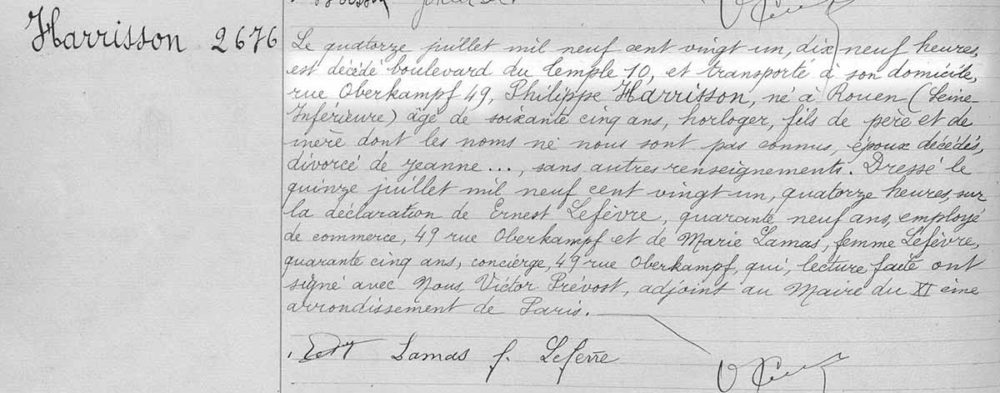 Harrisson 2676
Le quatorze juillet mil neuf cent vingt un, dix neuf heures,
est décédé boulevard du Temple 10, et transporté à son domicile,
rue Oberkampf 49, Philippe Harrisson, né à Rouen (Seine
Inférieure) âgé de soixante cinq ans, horloger, fils de père et de
mère dont les noms ne nous sont pas connus, époux décédés,
divorcé de Jeanne ..., sans autres renseignements. Dressé le
quinze juillet mil neuf cent vingt un, quatorze heures, sur
la déclaration de Ernest Lefèvre, quarante neuf ans, employé
de commerce, 49 rue Oberkampf et de Marie Lamas, femme Lefèvre,
quarante cinq ans, concierge, 49 rue Oberkampf, qui, lecture faite ont
signé avec Nous, Victor Prevost, adjoint au Maire du XI eme
arrondissement de Paris.
Lamas f. Lefevre